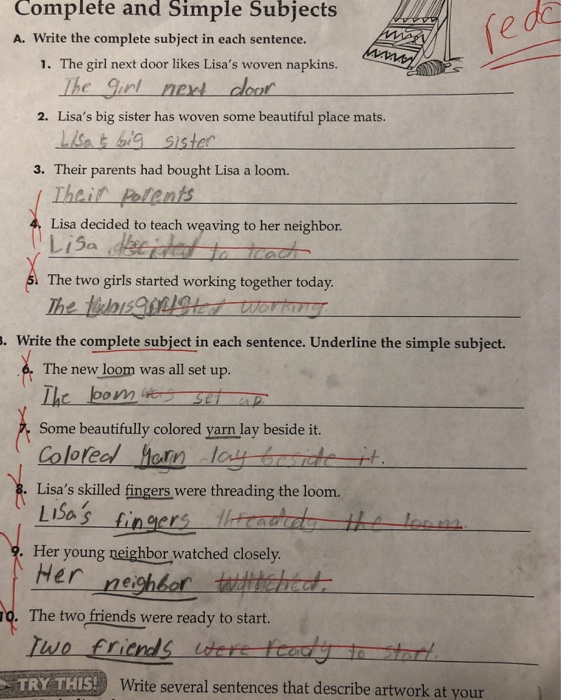 Complete and Simple Subjects
redo
A. Write the complete subject in each sentence.
1. The girl next door likes Lisa's woven napkins.
The girl next door
2. Lisa's big sister has woven some beautiful place mats.
Lisa's big sister
3. Their parents had bought Lisa a loom.
Their parents
4. Lisa decided to teach weaving to her neighbor.
Lisa decided to teach
5. The two girls started working together today.
The girls working
B. Write the complete subject in each sentence. Underline the simple subject.
6. The new loom was all set up.
The loom was set up.
7. Some beautifully colored yarn lay beside it.
Colored Yarn lay beside it.
8. Lisa's skilled fingers were threading the loom.
Lisa's fingers the loom.
9. Her young neighbor watched closely.
Her neighbor
10. The two friends were ready to start.
Two friends were ready to start.
TRY THIS! Write several sentences that describe artwork at your